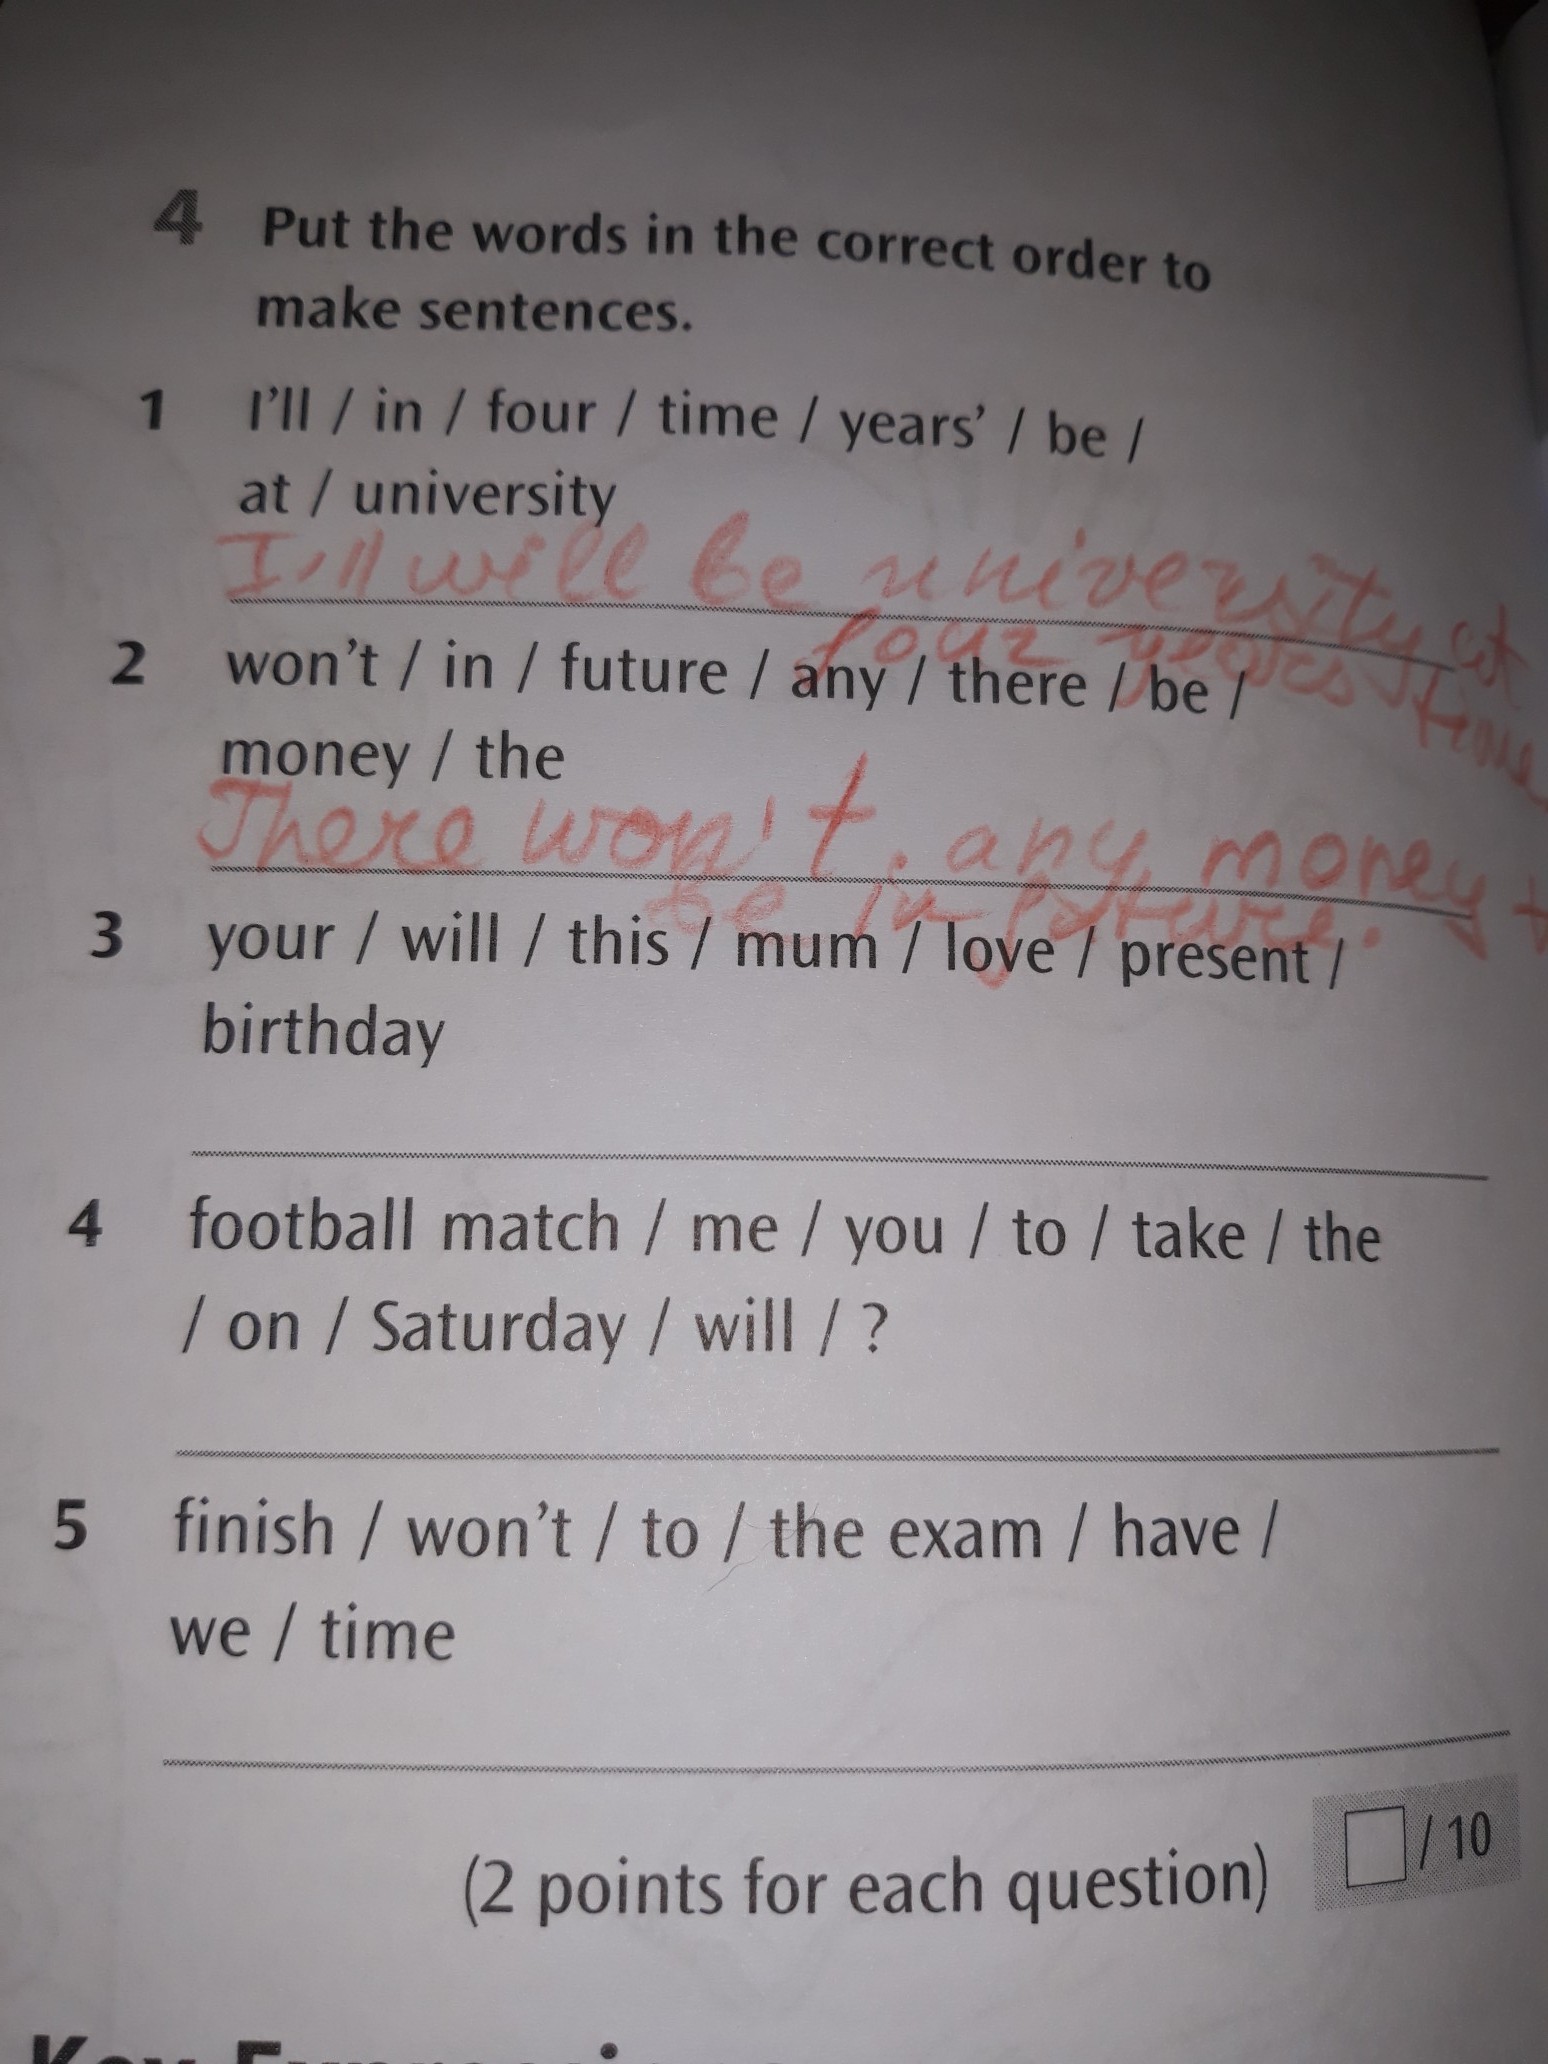 4 Put the words in the correct order to
make sentences.
1 I'll / in / four / time / years' / be /
at / university
I'll will be university at
four years time
2 won't / in / future / any / there / be /
money / the
There won't any money
be in future.
3 your / will / this / mum / love / present /
birthday
4 football match / me / you / to / take / the
/ on / Saturday / will / ?
5 finish / won't / to / the exam / have /
we / time
(2 points for each question) / 10